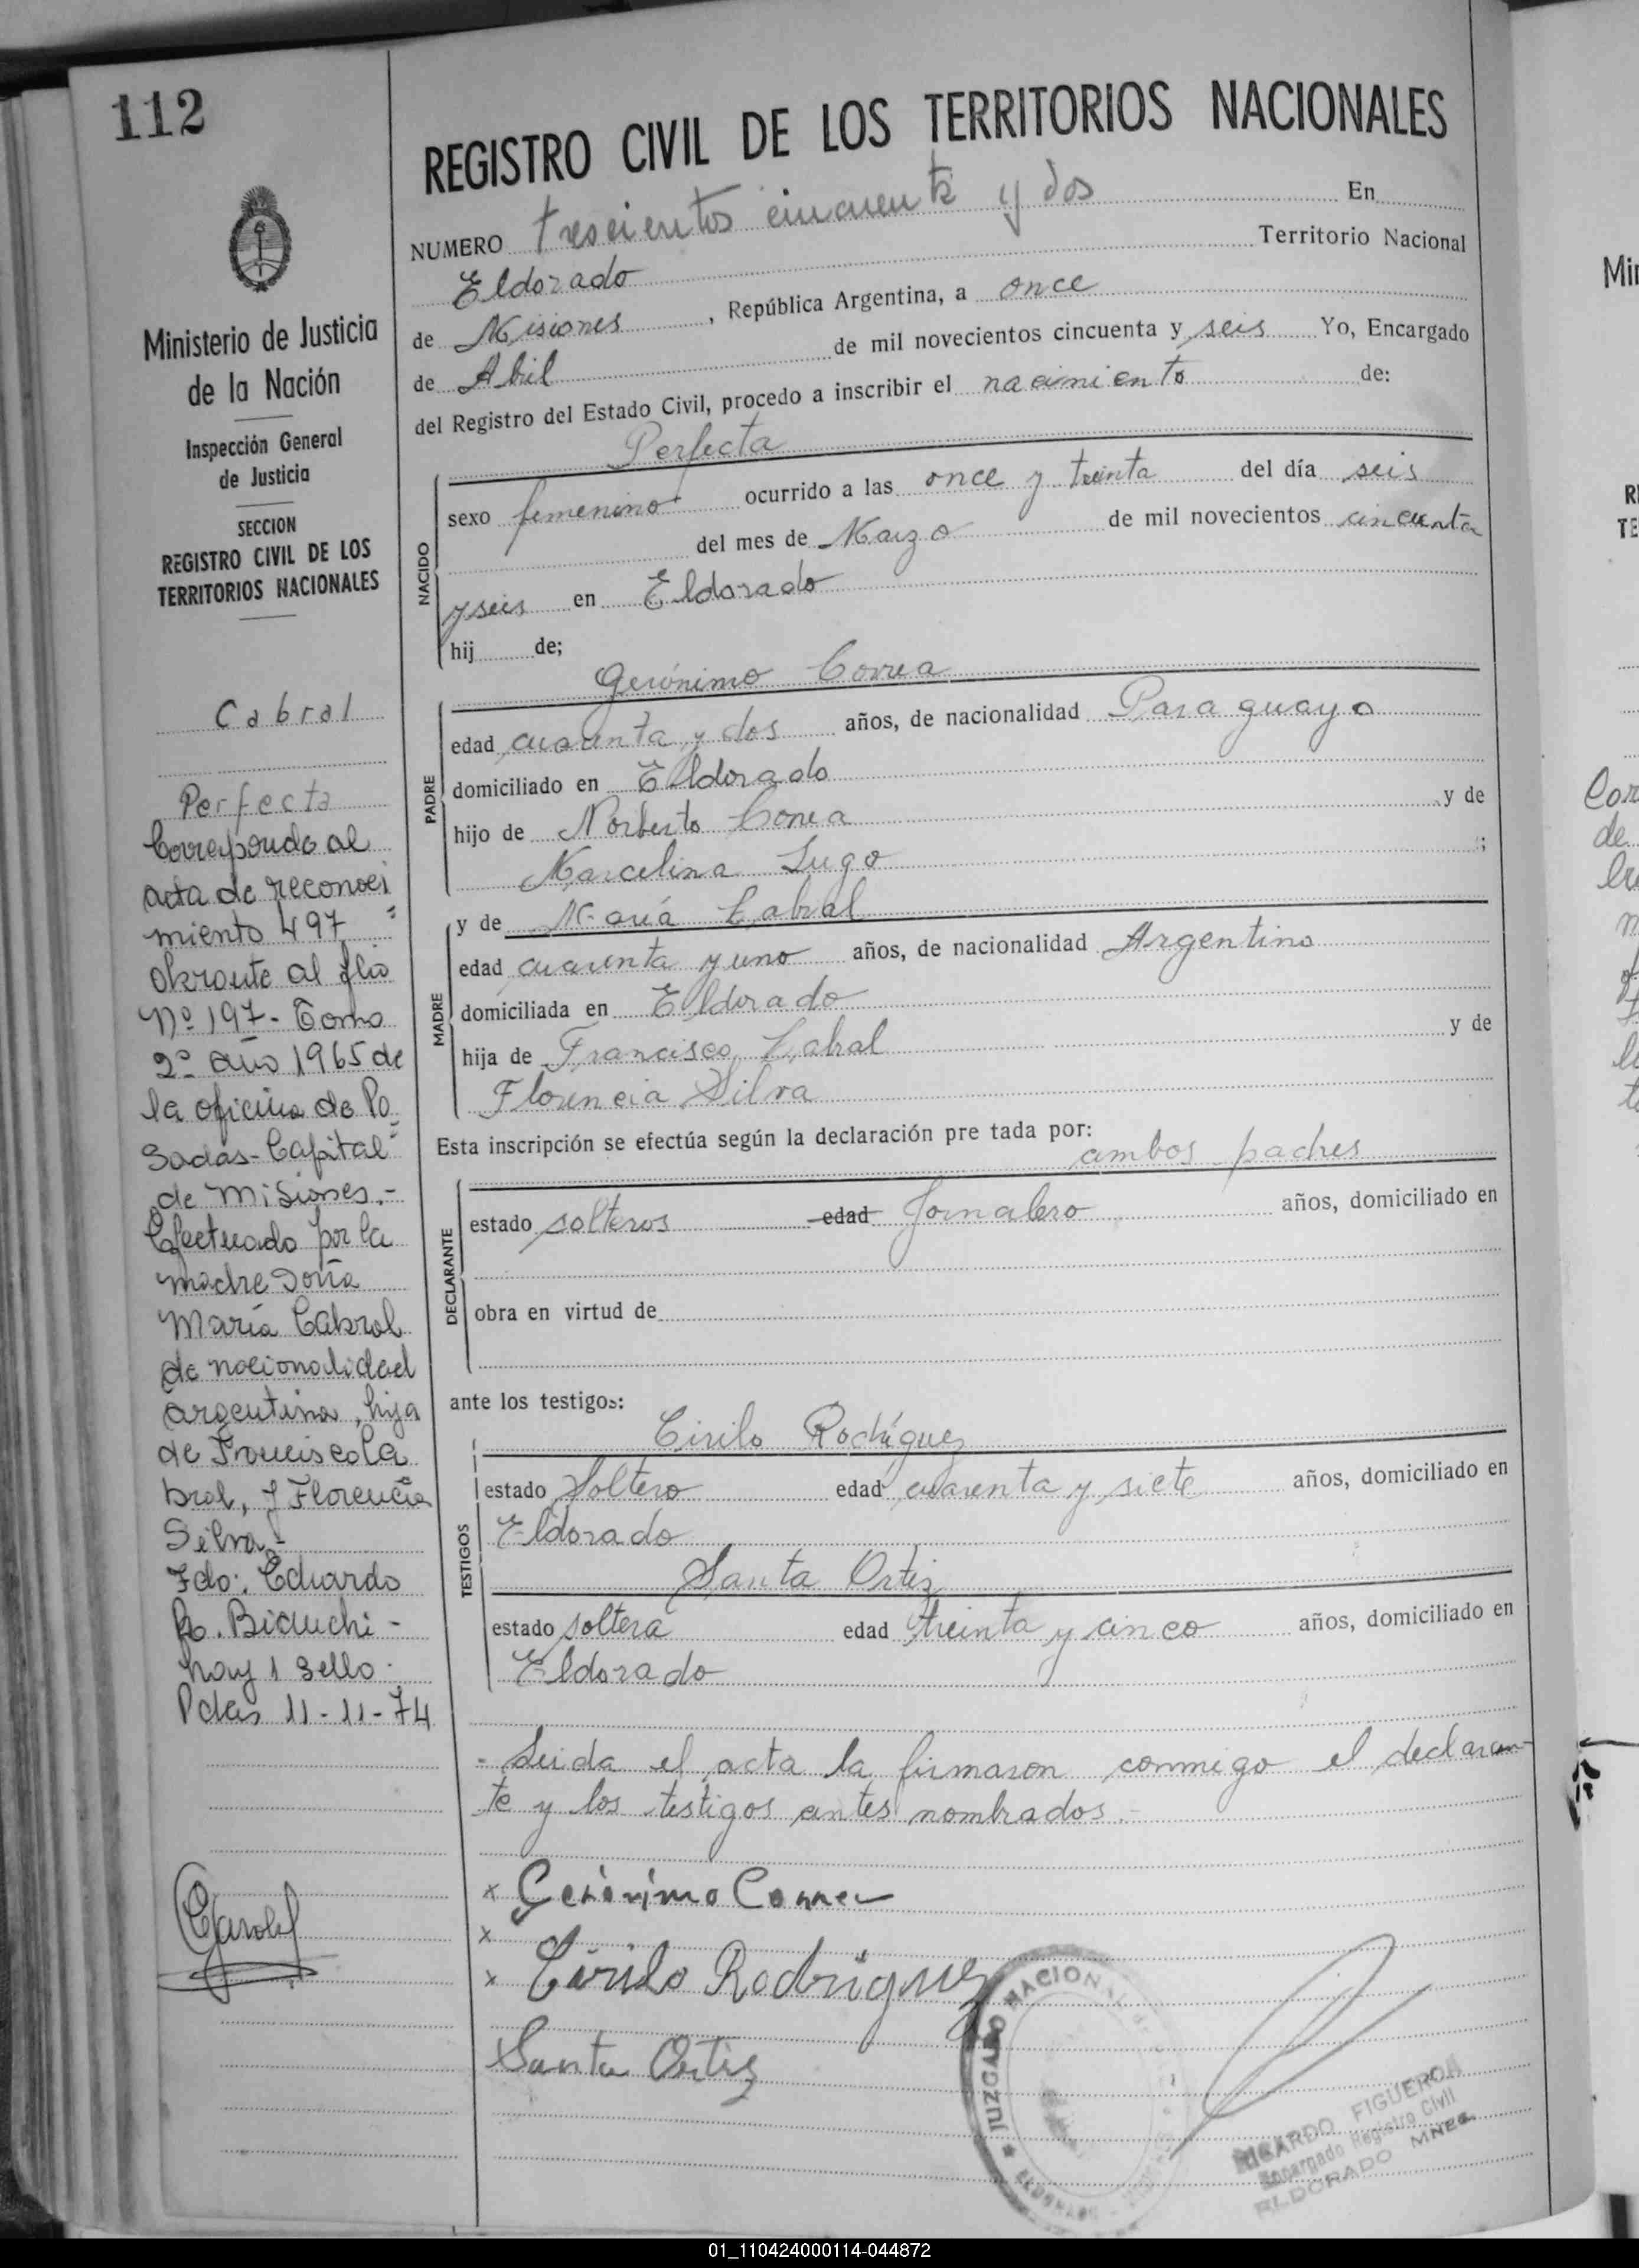 112
Ministerio de Justicia
de la Nación
Inspección General
de Justicia
SECCION
REGISTRO CIVIL DE LOS
TERRITORIOS NACIONALES
Cabral
Perfecta
Corresponde al
acta de reconoci
miento 497 =
obrante al flio
Nº 197- Tomo
2º año 1965 de
la oficina de Po
=
sadas-Capital
de Misiones.-
Efectuado por la
madre Doña
María Cabral
de nacionalidad
argentina, hija
de Francisco Ca
bral, y Florencia
Silva.-
Fdo: Eduardo
R. Bianchi -
hay 1 sello.
Pdas 11-11-74
REGISTRO CIVIL DE LOS TERRITORIOS NACIONALES
NUMERO trescientos cincuenta y dos En
Eldorado Territorio Nacional
de Misiones, República Argentina, a once
de Abril de mil novecientos cincuenta y seis Yo, Encargado
del Registro del Estado Civil, procedo a inscribir el nacimiento de:
Perfecta
NACIDO
sexo femenino ocurrido a las once y treinta del día seis
del mes de Marzo de mil novecientos cincuenta
y seis en Eldorado
hij de;
Gerónimo Correa
PADRE
edad cuarenta y dos años, de nacionalidad Paraguayo
domiciliado en Eldorado
hijo de Norberto Correa y de
Marcelina Lugo ;
y de María Cabral
MADRE
edad cuarenta y uno años, de nacionalidad Argentina
domiciliada en Eldorado
hija de Francisco Cabral y de
Florencia Silva
Esta inscripción se efectúa según la declaración pre tada por:
ambos padres
DECLARANTE
estado solteros edad Jornalero años, domiciliado en
obra en virtud de
ante los testigos:
Cirilo Rodríguez
TESTIGOS
estado Soltero edad cuarenta y siete años, domiciliado en
Eldorado
Santa Ortiz
estado soltera edad treinta y cinco años, domiciliado en
Eldorado
- Leida el acta la firmaron conmigo el declaran-
te y los testigos antes nombrados.-
x Gerónimo Correa
x
x Cirilo Rodriguez
Santa Ortiz
JUZGADO NACIONAL
RICARDO FIGUEROA
Encargado Registro Civil
ELDORADO MNES.
01_110424000114-044872